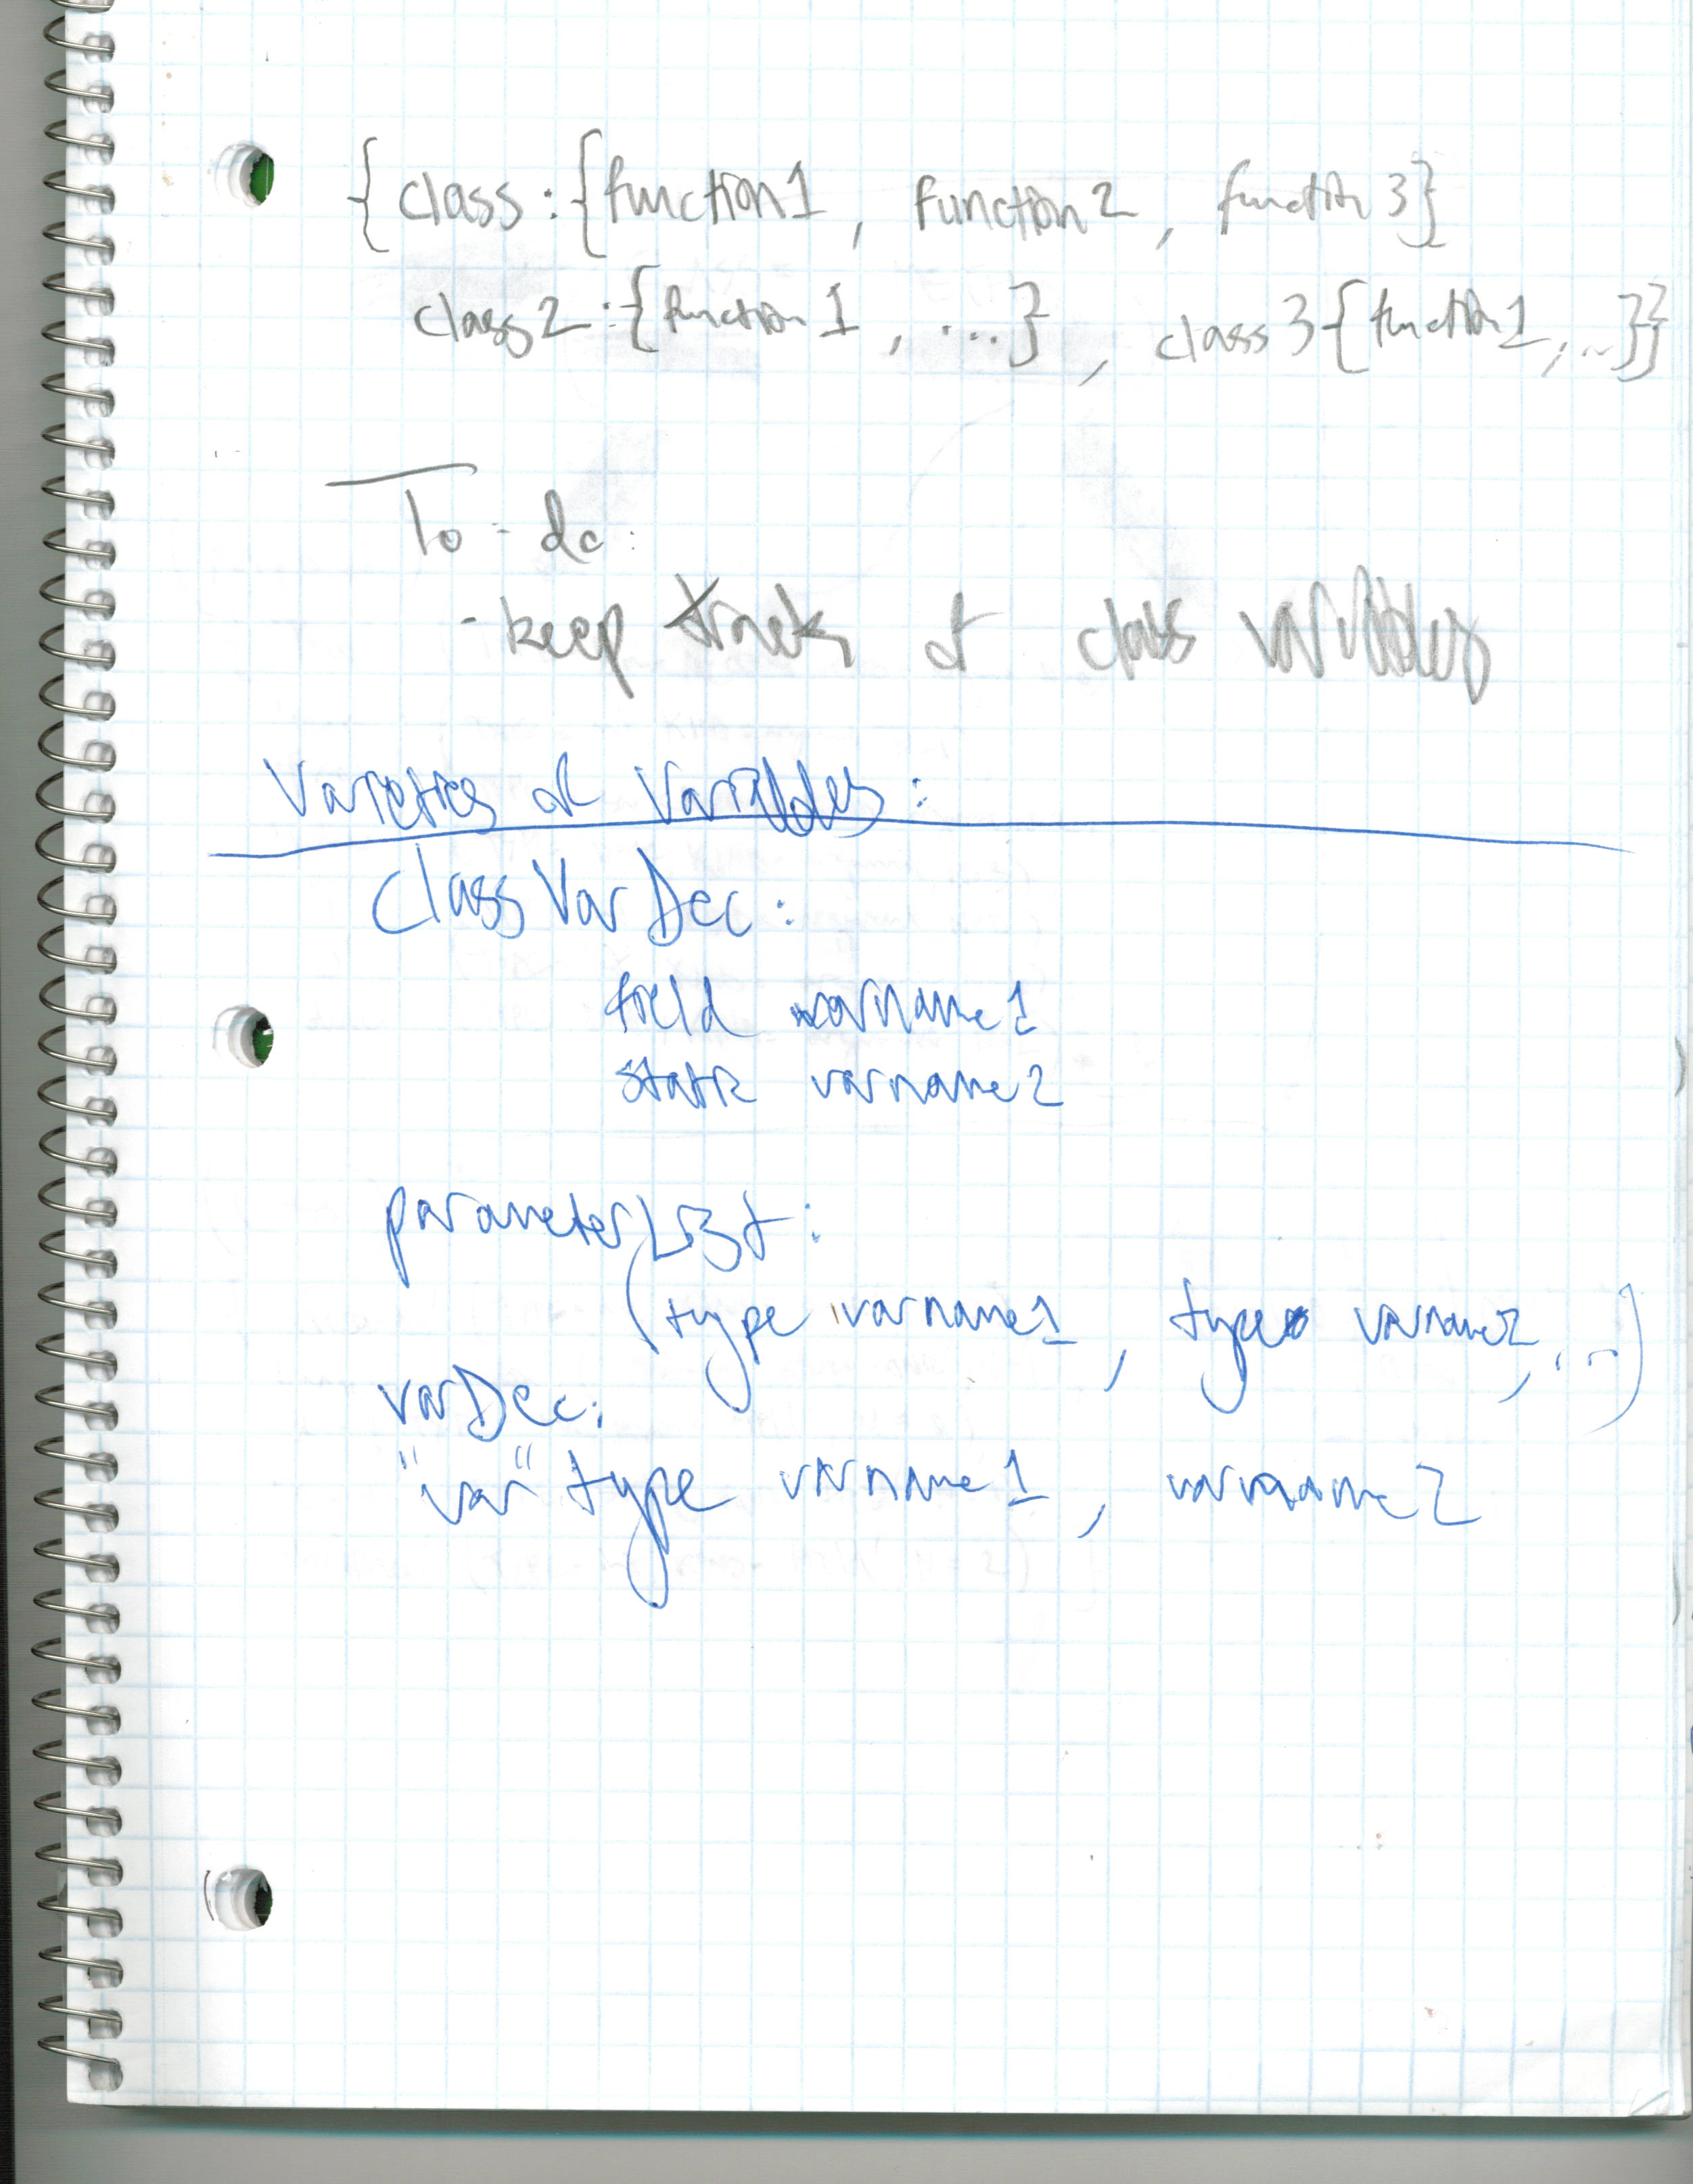 {class:{function1, function2, function3}
class2:{function1, ...}, class3{function1,...}}
To-do:
-keep track of class variables
Varieties of Variables:
classVarDec:
field varname1
static varname2
parameterList:
(type varname1, type varname2,...)
varDec:
"var" type varname1, varname2